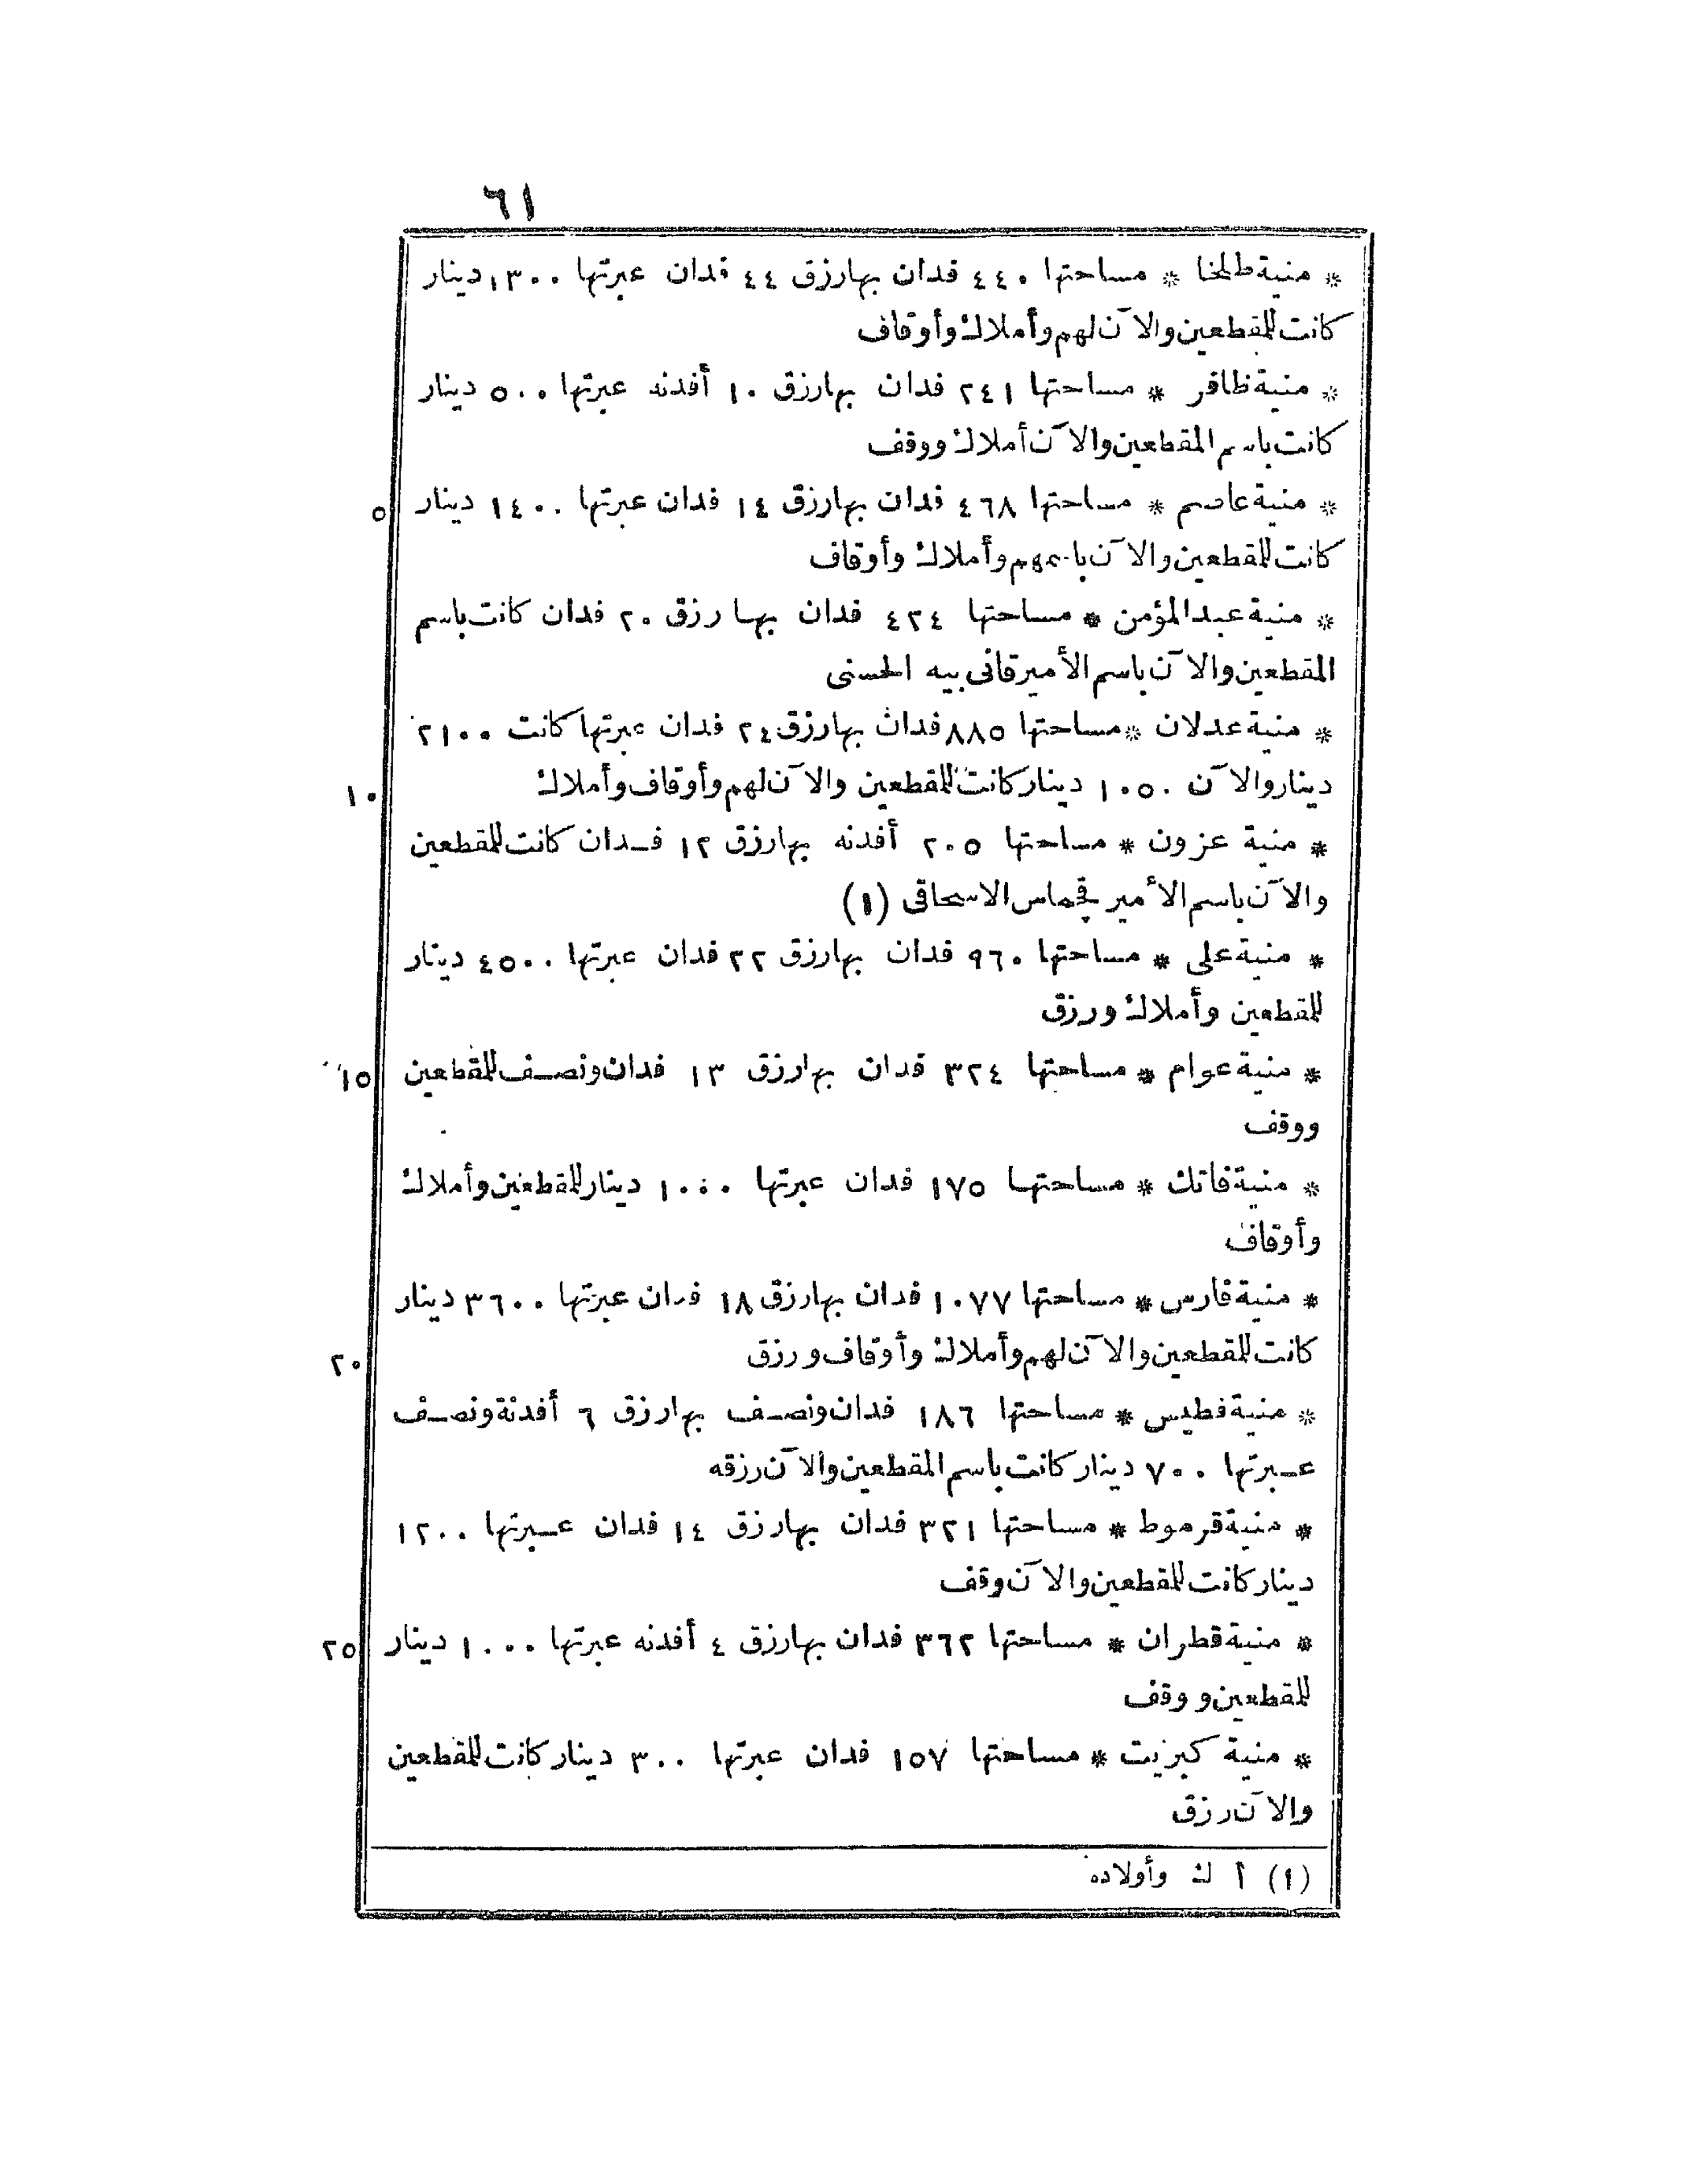 ٦١
* منية طلخا * مساحتها ٤٤٠ فدان بها رزق ٤٤ فدان عبرتها ١٣٠٠ دينار
كانت للمقطعين والآن لهم وأملاك وأوقاف
* منية ظافر * مساحتها ٢٤١ فدان بها رزق ١٠ أفدنه عبرتها ٥٠٠ دينار
كانت باسم المقطعين والآن أملاك ووقف
* منية عاصم * مساحتها ٤٦٨ فدان بها رزق ١٤ فدان عبرتها ١٤٠٠ دينار
٥
كانت للمقطعين والآن باسمهم وأملاك وأوقاف
* منية عبد المؤمن * مساحتها ٤٢٤ فدان بها رزق ٢٠ فدان كانت باسم
المقطعين والآن باسم الأمير قانى بيه الحسنى
* منية عدلان * مساحتها ٨٨٥ فدان بها رزق ٢٤ فدان عبرتها كانت ٢١٠٠
دينار والآن ١٠٥٠ دينار كانت للمقطعين والآن لهم وأوقاف وأملاك
١٠
* منية عزون * مساحتها ٢٠٥ أفدنه بها رزق ١٢ فدان كانت للمقطعين
والآن باسم الأمير قجماس الاسحاقى (١)
* منية على * مساحتها ٩٦٠ فدان بها رزق ٢٢ فدان عبرتها ٤٥٠٠ دينار
للمقطعين وأملاك ورزق
* منية عوام * مساحتها ٣٢٤ فدان بها رزق ١٣ فدان ونصف للمقطعين
١٥
ووقف
* منية فاتك * مساحتها ١٧٥ فدان عبرتها ١٠٠٠ دينار للمقطعين وأملاك
وأوقاف
* منية فارس * مساحتها ١٠٧٧ فدان بها رزق ١٨ فدان عبرتها ٣٦٠٠ دينار
كانت للمقطعين والآن لهم وأملاك وأوقاف ورزق
٢٠
* منية فطيس * مساحتها ١٨٦ فدان ونصف بها رزق ٦ أفدنة ونصف
عبرتها ٧٠٠ دينار كانت باسم المقطعين والآن رزقه
* منية قرموط * مساحتها ٣٢١ فدان بها رزق ١٤ فدان عبرتها ١٢٠٠
دينار كانت للمقطعين والآن وقف
* منية قطران * مساحتها ٣٦٢ فدان بها رزق ٤ أفدنه عبرتها ١٠٠٠ دينار
٢٥
للمقطعين ووقف
* منية كبريت * مساحتها ١٥٧ فدان عبرتها ٣٠٠ دينار كانت للمقطعين
والآن رزق
(١) أ ك وأولاده